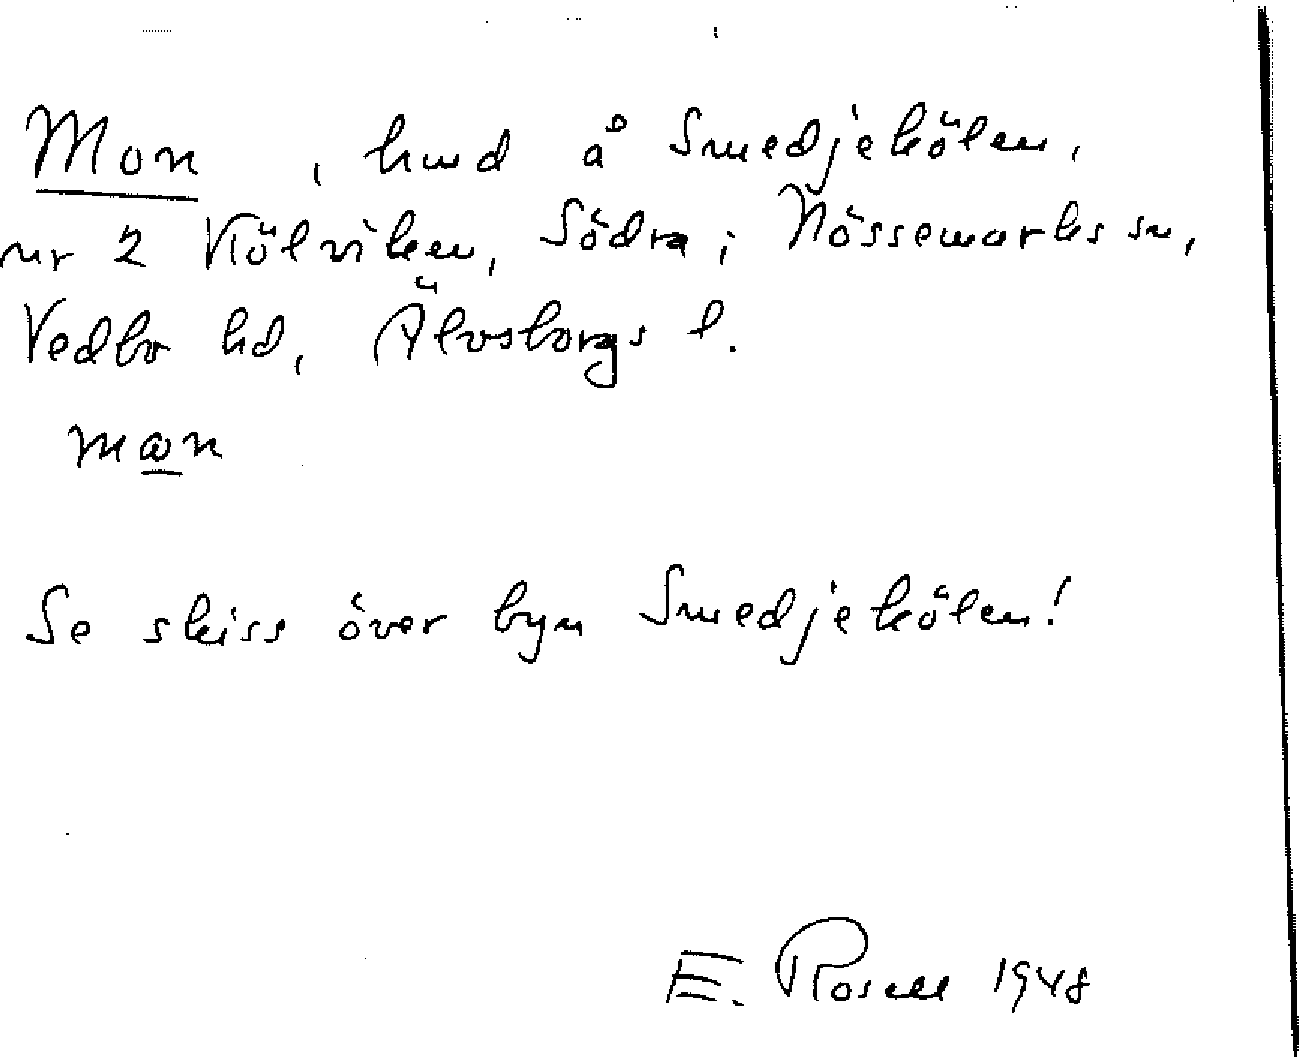 Mon, hmd å Smedjekölen,
nr 2 Kölviken, Södra, i Nössemarks sn,
Vedbo hd, Älvsborgs l.
mωn
Se skiss över byn Smedjekölen!
E. Rosell 1948